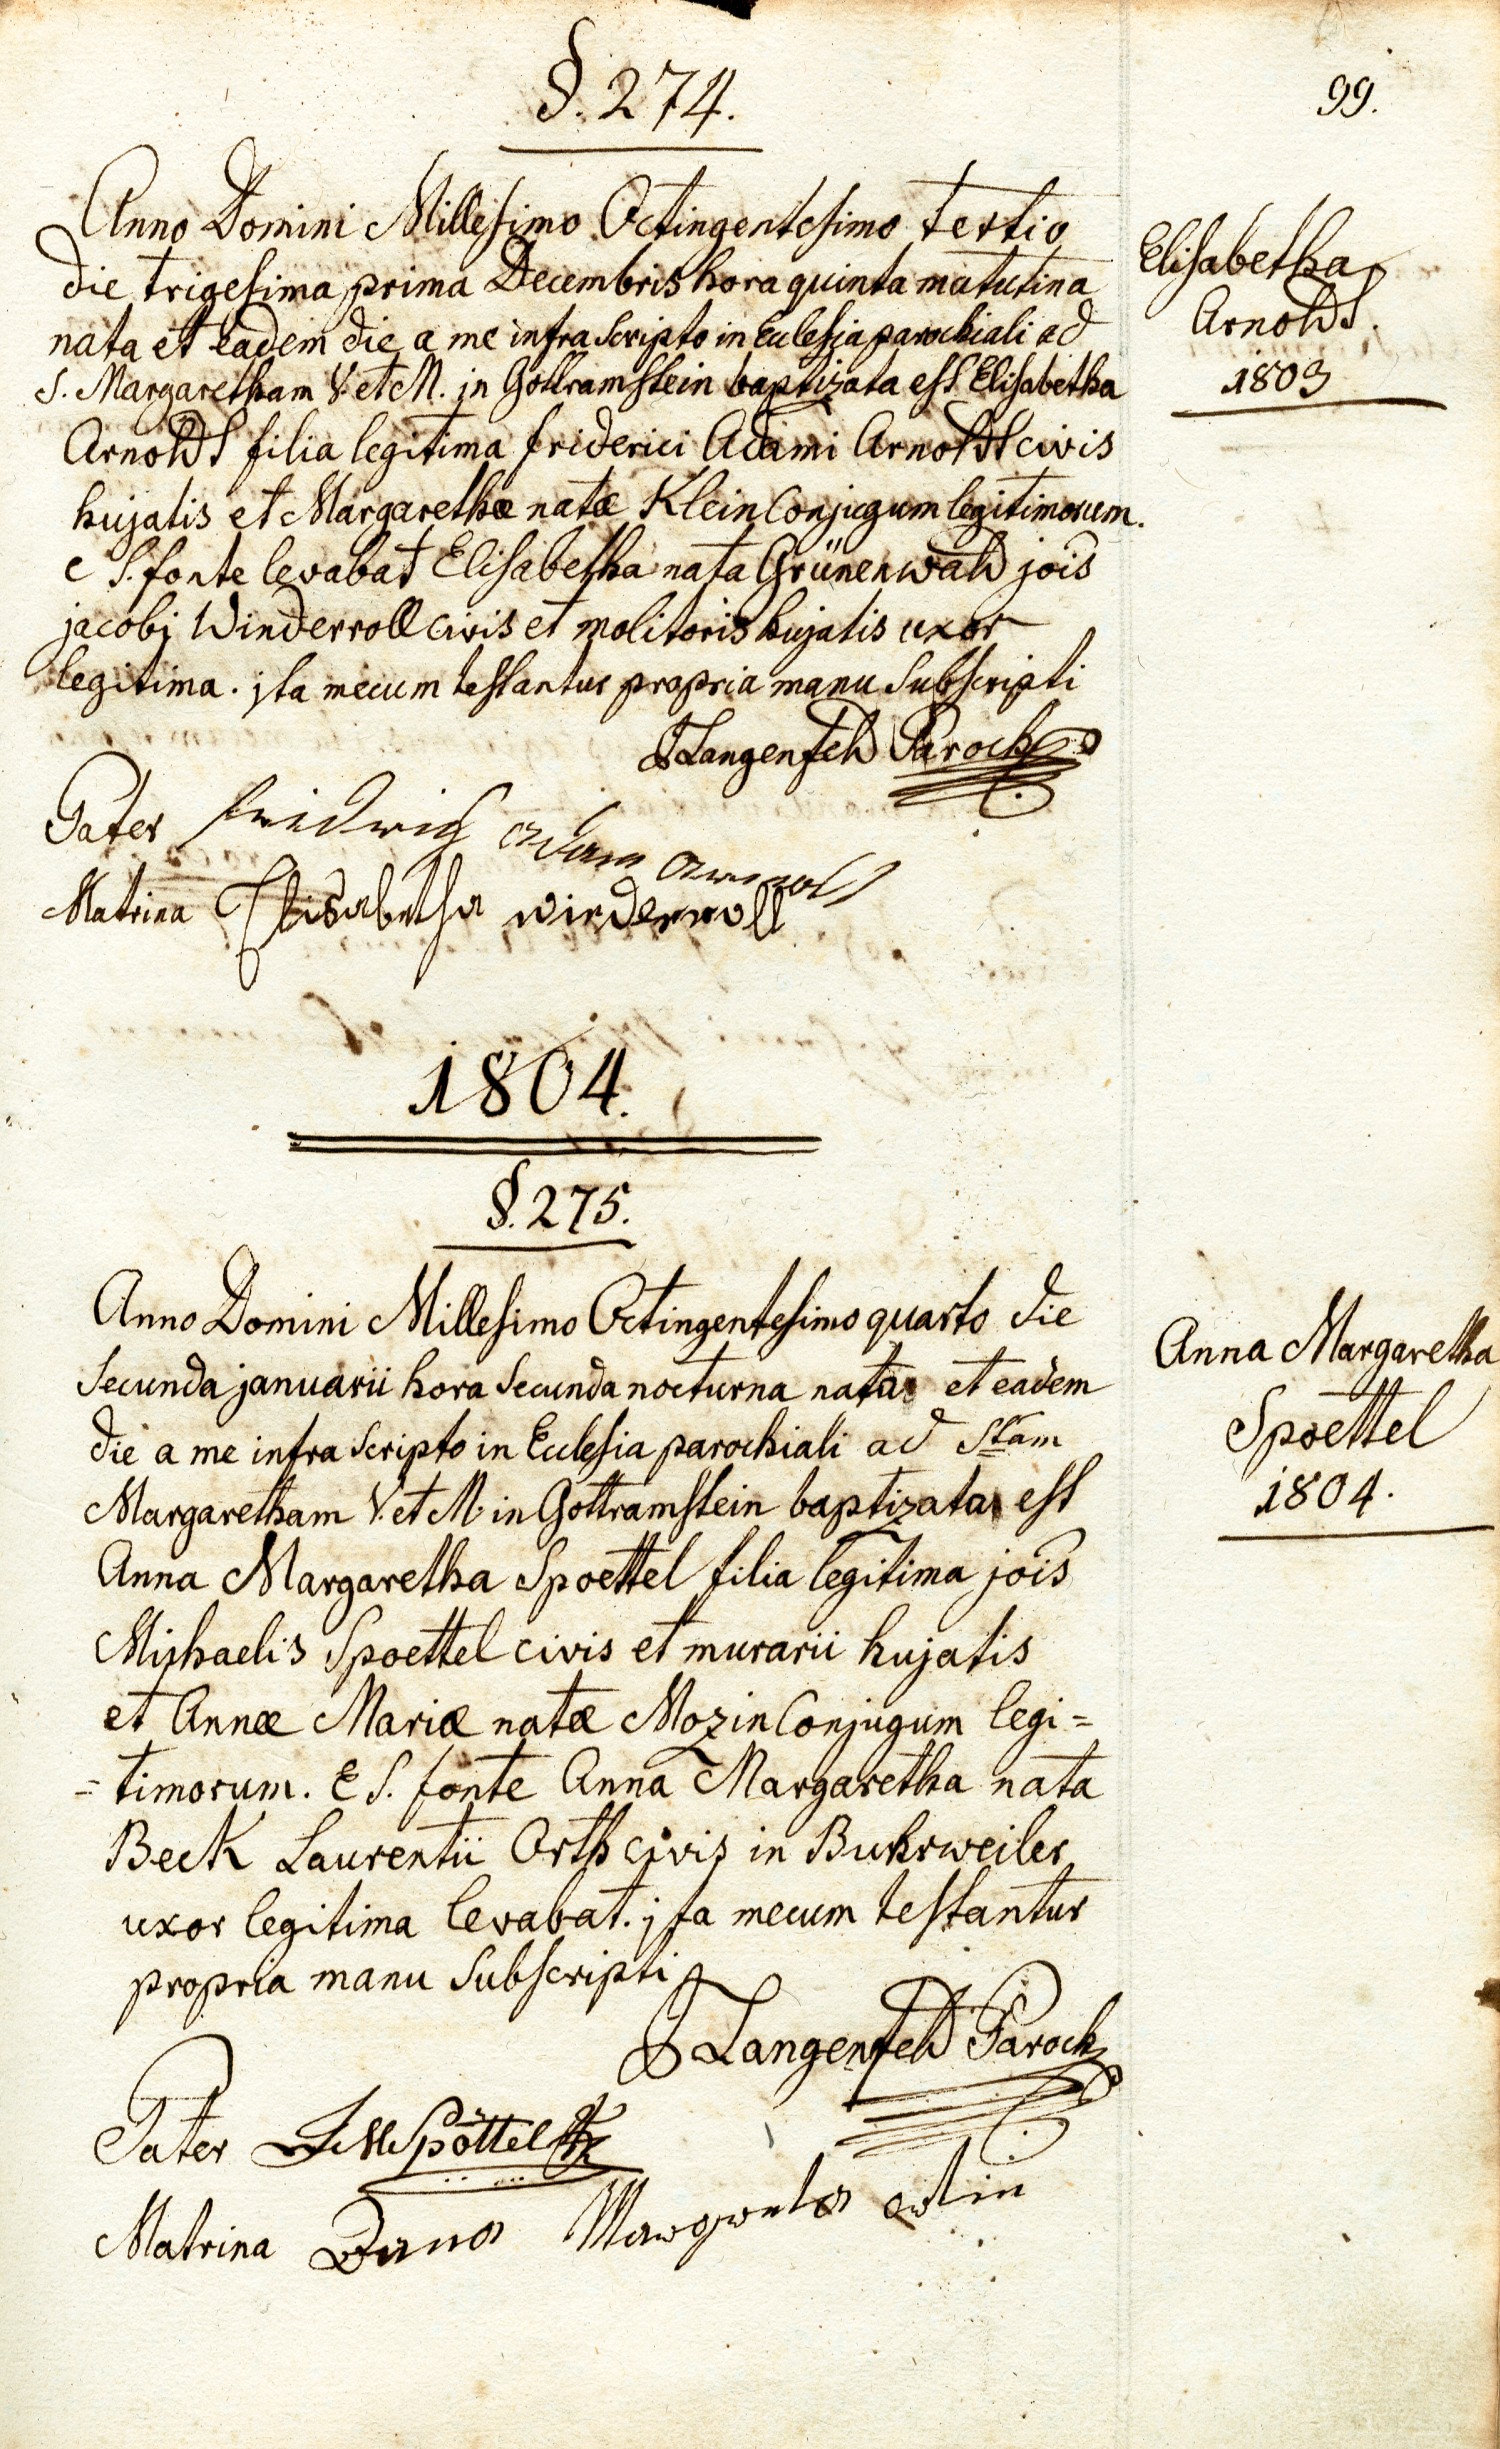 99.
§. 274.
Anno Domini Millesimo Octingentesimo tertio
die trigesima prima Decembris hora quinta matutina
nata et eadem die a me infra scripto in Ecclesia parochiali ad
S. Margaretham V. et M. in Gottramstein baptizata est Elisabetha
Arnoldt filia legitima friderici Adami Arnoldt civis
hujatis et Margarethæ natæ Klein Conjugum legitimorum.
e S. fonte levabat Elisabetha nata Grünenwald jois
jacobi Winderroll civis et molitoris hujatis uxor
legitima. jta mecum testantur propria manu subscripti
Langenfeld Paroch
Pater fridrich adam arnold
Matrina Elisabetha winderroll
Elisabetha
Arnoldt.
1803
1804.
§. 275.
Anno Domini Millesimo Octingentesimo quarto die
secunda januarii hora secunda nocturna nata et eadem
die a me infra scripto in Ecclesia parochiali ad Stam
Margaretham V. et M. in Gottramstein baptizata est
Anna Margaretha Spoettel filia legitima jois
Michaelis Spoettel civis et murarii hujatis
et Annæ Mariæ natæ Mozin Conjugum legi=
=timorum. E S. fonte Anna Margaretha nata
Beck Laurentii Orth civis in Buhrweiler
uxor legitima levabat. jta mecum testantur
propria manu subscripti
Langenfeld Paroch
Pater JM Spöttel
Matrina Anna Margreta ortin
Anna Margaretha
Spoettel
1804.